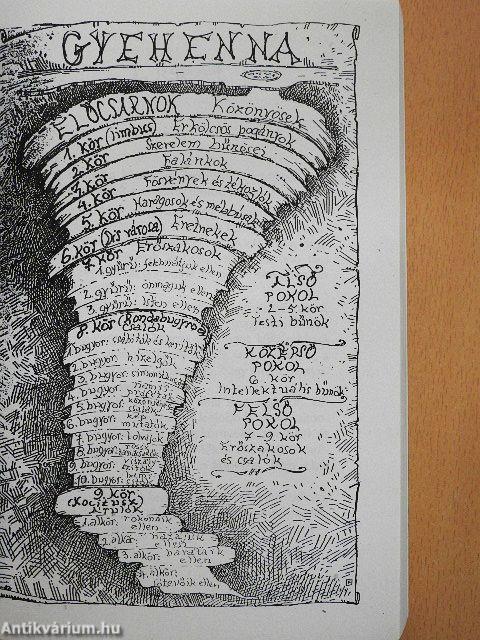 GYEHENNA
ELŐCSARNOK Közönyösek
1. kör (limbus) Erkölcsös pogányok
2. kör Szerelem bűnösei
3. kör Falánkok
4. kör Fösvények és tékozlók
5. kör Haragosok és
6. kör (Dis városa) Eretnekek
7. kör Erőszakosok
1. gyűrű: felebarátjuk ellen
2. gyűrű: önmaguk ellen
3. gyűrű: Isten ellen
8. kör (Rondabugyrok)
Csalók
1. bugyor: csábítók és kerítők
2. bugyor: hízelgők
3. bugyor: simoniákusok
4. bugyor:
5. bugyor:
6. bugyor: képmutatók
7. bugyor: tolvajok
8. bugyor:
9. bugyor:
10. bugyor:
9. kör
(Kocitus)
Árulók
1. alkör: rokonaik
ellen
2. alkör: hazájuk
ellen
3. alkör: barátaik
ellen
4. alkör:
jótevőik ellen
ALSÓ
POKOL
2-5. kör
Testi bűnök
KÖZÉPSŐ
POKOL
6. kör
Intellektuális bűnök
FELSŐ
POKOL
7-9. kör
Erőszakosok
és csalók
Antikvárium.hu